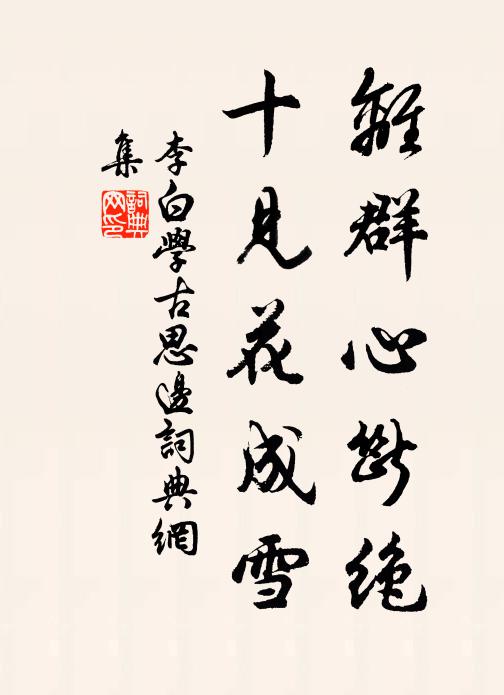 離群心斷絕
十見花成雪
李白學古思邊詞典網
集
詞典網印